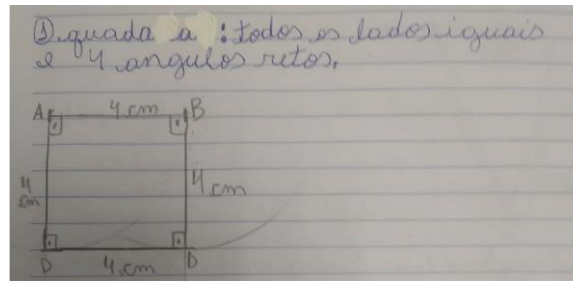 :todos os lados iguais
e 4 angulos retos.
A 4 cm B
4 cm 4 cm
D 4 cm D